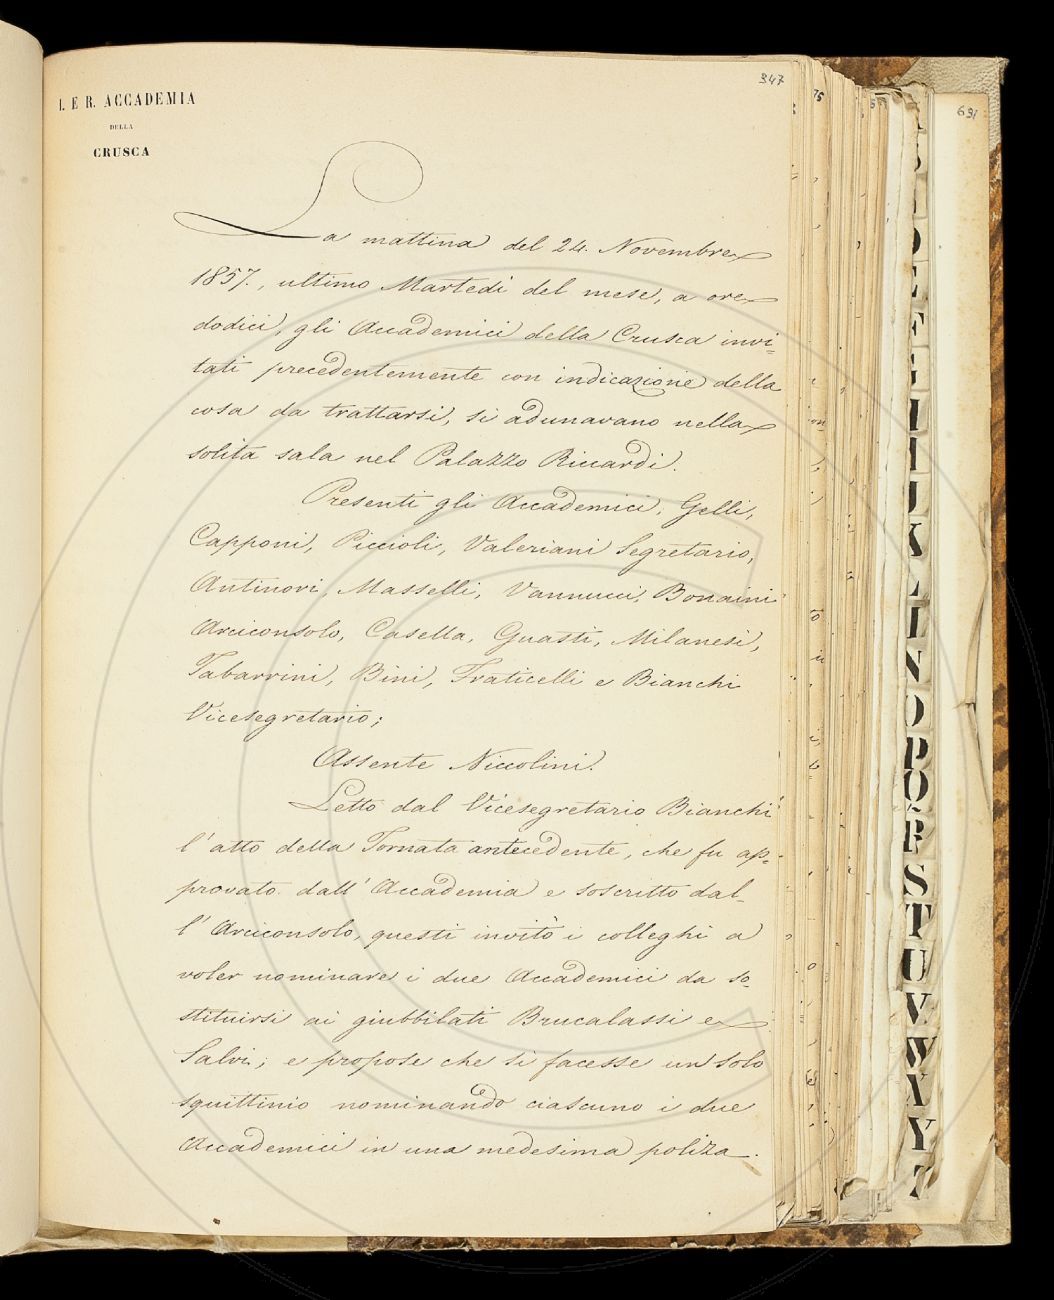 347
I. E R. ACCADEMIA
DELLA
CRUSCA
La mattina del 24. Novembre
1857., ultimo Martedì del mese, a ore
dodici, gli Accademici della Crusca invi-
tati precedentemente con indicazione della
cosa da trattarsi, si adunavano nella
solita sala nel Palazzo Riccardi.
Presenti gli Accademici, Gelli,
Capponi, Piccioli, Valeriani Segretario,
Antinori, Masselli, Vannucci, Bonaini
Arciconsolo, Casella, Guasti, Milanesi,
Tabarrini, Bini, Fraticelli e Bianchi
Vicesegretario;
Assente Niccolini.
Letto dal Vicesegretario Bianchi
l'atto della Tornata antecedente, che fu ap-
provato dall'Accademia e soscritto dal-
l'Arciconsolo, questi invitò i colleghi a
voler nominare i due Accademici da so-
stituirsi ai giubbilati Brucalassi e
Salvi; e propose che si facesse un solo
squittinio nominando ciascuno i due
Accademici in una medesima poliza.
75
691
D
E
F
G
H
I
J
K
L
M
N
O
P
Q
R
S
T
U
V
W
X
Y
Z